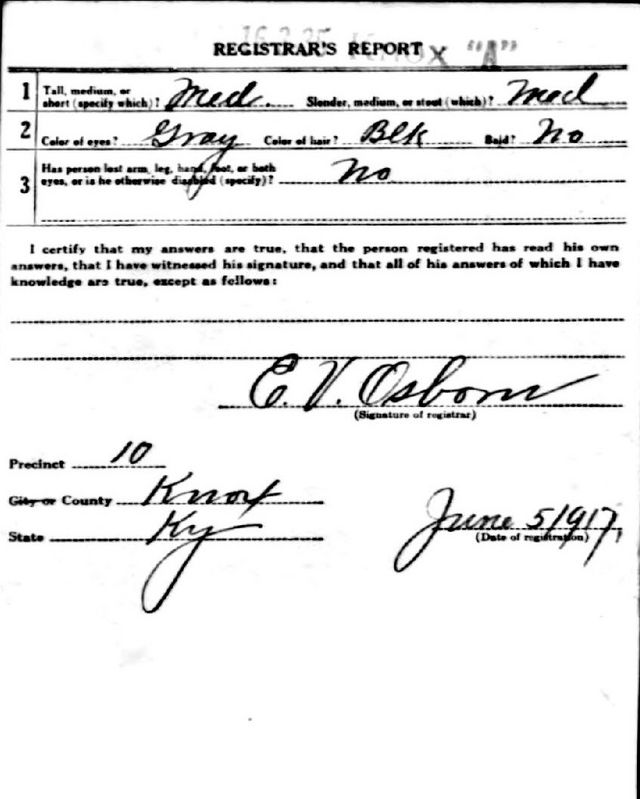 16-3-25 Knox "A"
REGISTRAR'S REPORT
1 Tall, medium, or short (specify which)? Med. Slender, medium, or stout (which)? Med
2 Color of eyes? Gray Color of hair? Blk Bald? No
3 Has person lost arm, leg, hand, foot, or both
eyes, or is he otherwise disabled (specify)? No
I certify that my answers are true, that the person registered has read his own
answers, that I have witnessed his signature, and that all of his answers of which I have
knowledge are true, except as follows:
E. V. Osborn
(Signature of registrar)
Precinct 10
City or County Knox
State Ky
June 5 1917,
(Date of registration)